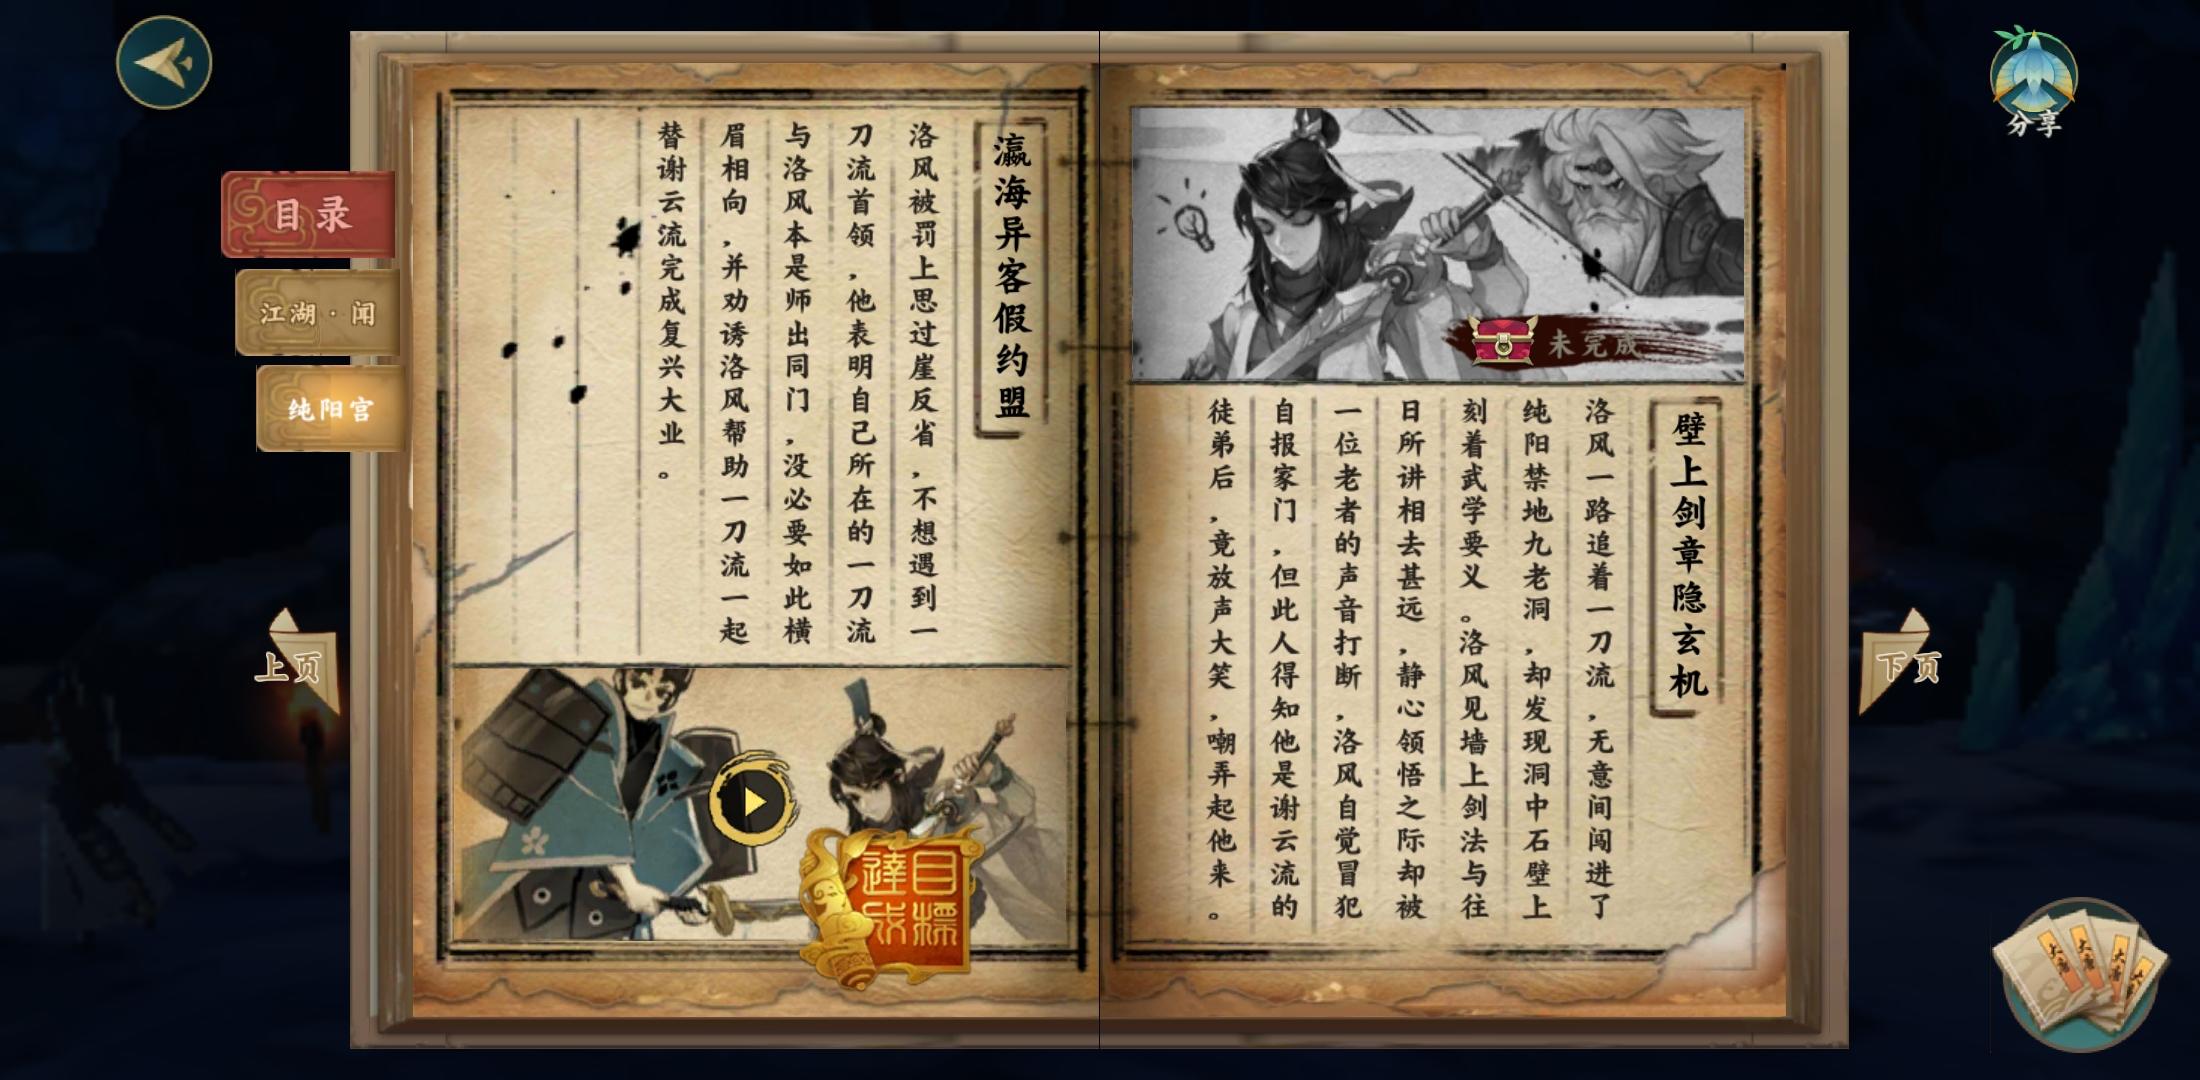 分享
目录
江湖·闻
纯阳宫
上页
下页
瀛海异客假约盟
洛风被罚上思过崖反省，不想遇到一
刀流首领，他表明自己所在的一刀流
与洛风本是师出同门，没必要如此横
眉相向，并劝诱洛风帮助一刀流一起
替谢云流完成复兴大业。
目標
達成
未完成
壁上剑章隐玄机
洛风一路追着一刀流，无意间闯进了
纯阳禁地九老洞，却发现洞中石壁上
刻着武学要义。洛风见墙上剑法与往
日所讲相去甚远，静心领悟之际却被
一位老者的声音打断，洛风自觉冒犯
自报家门，但此人得知他是谢云流的
徒弟后，竟放声大笑，嘲弄起他来。